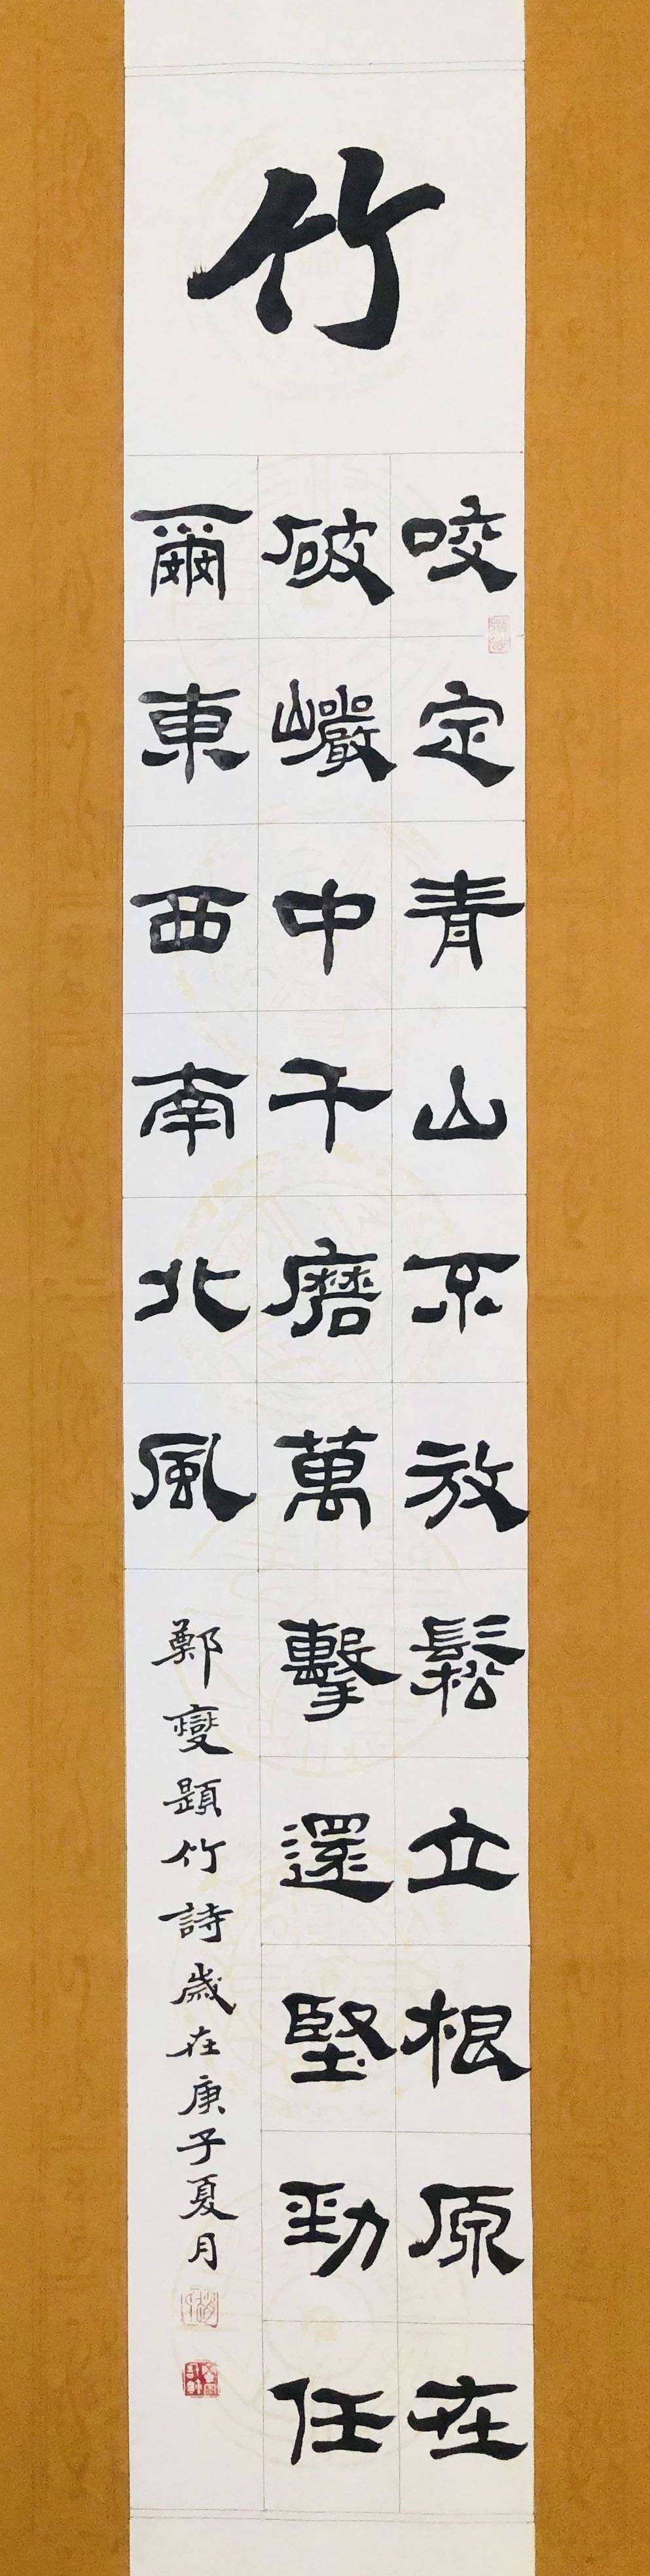 竹
咬定青山不放鬆立根原在
破巗中千磨萬擊還堅勁任
爾東西南北風
鄭燮題竹詩歲在庚子夏月